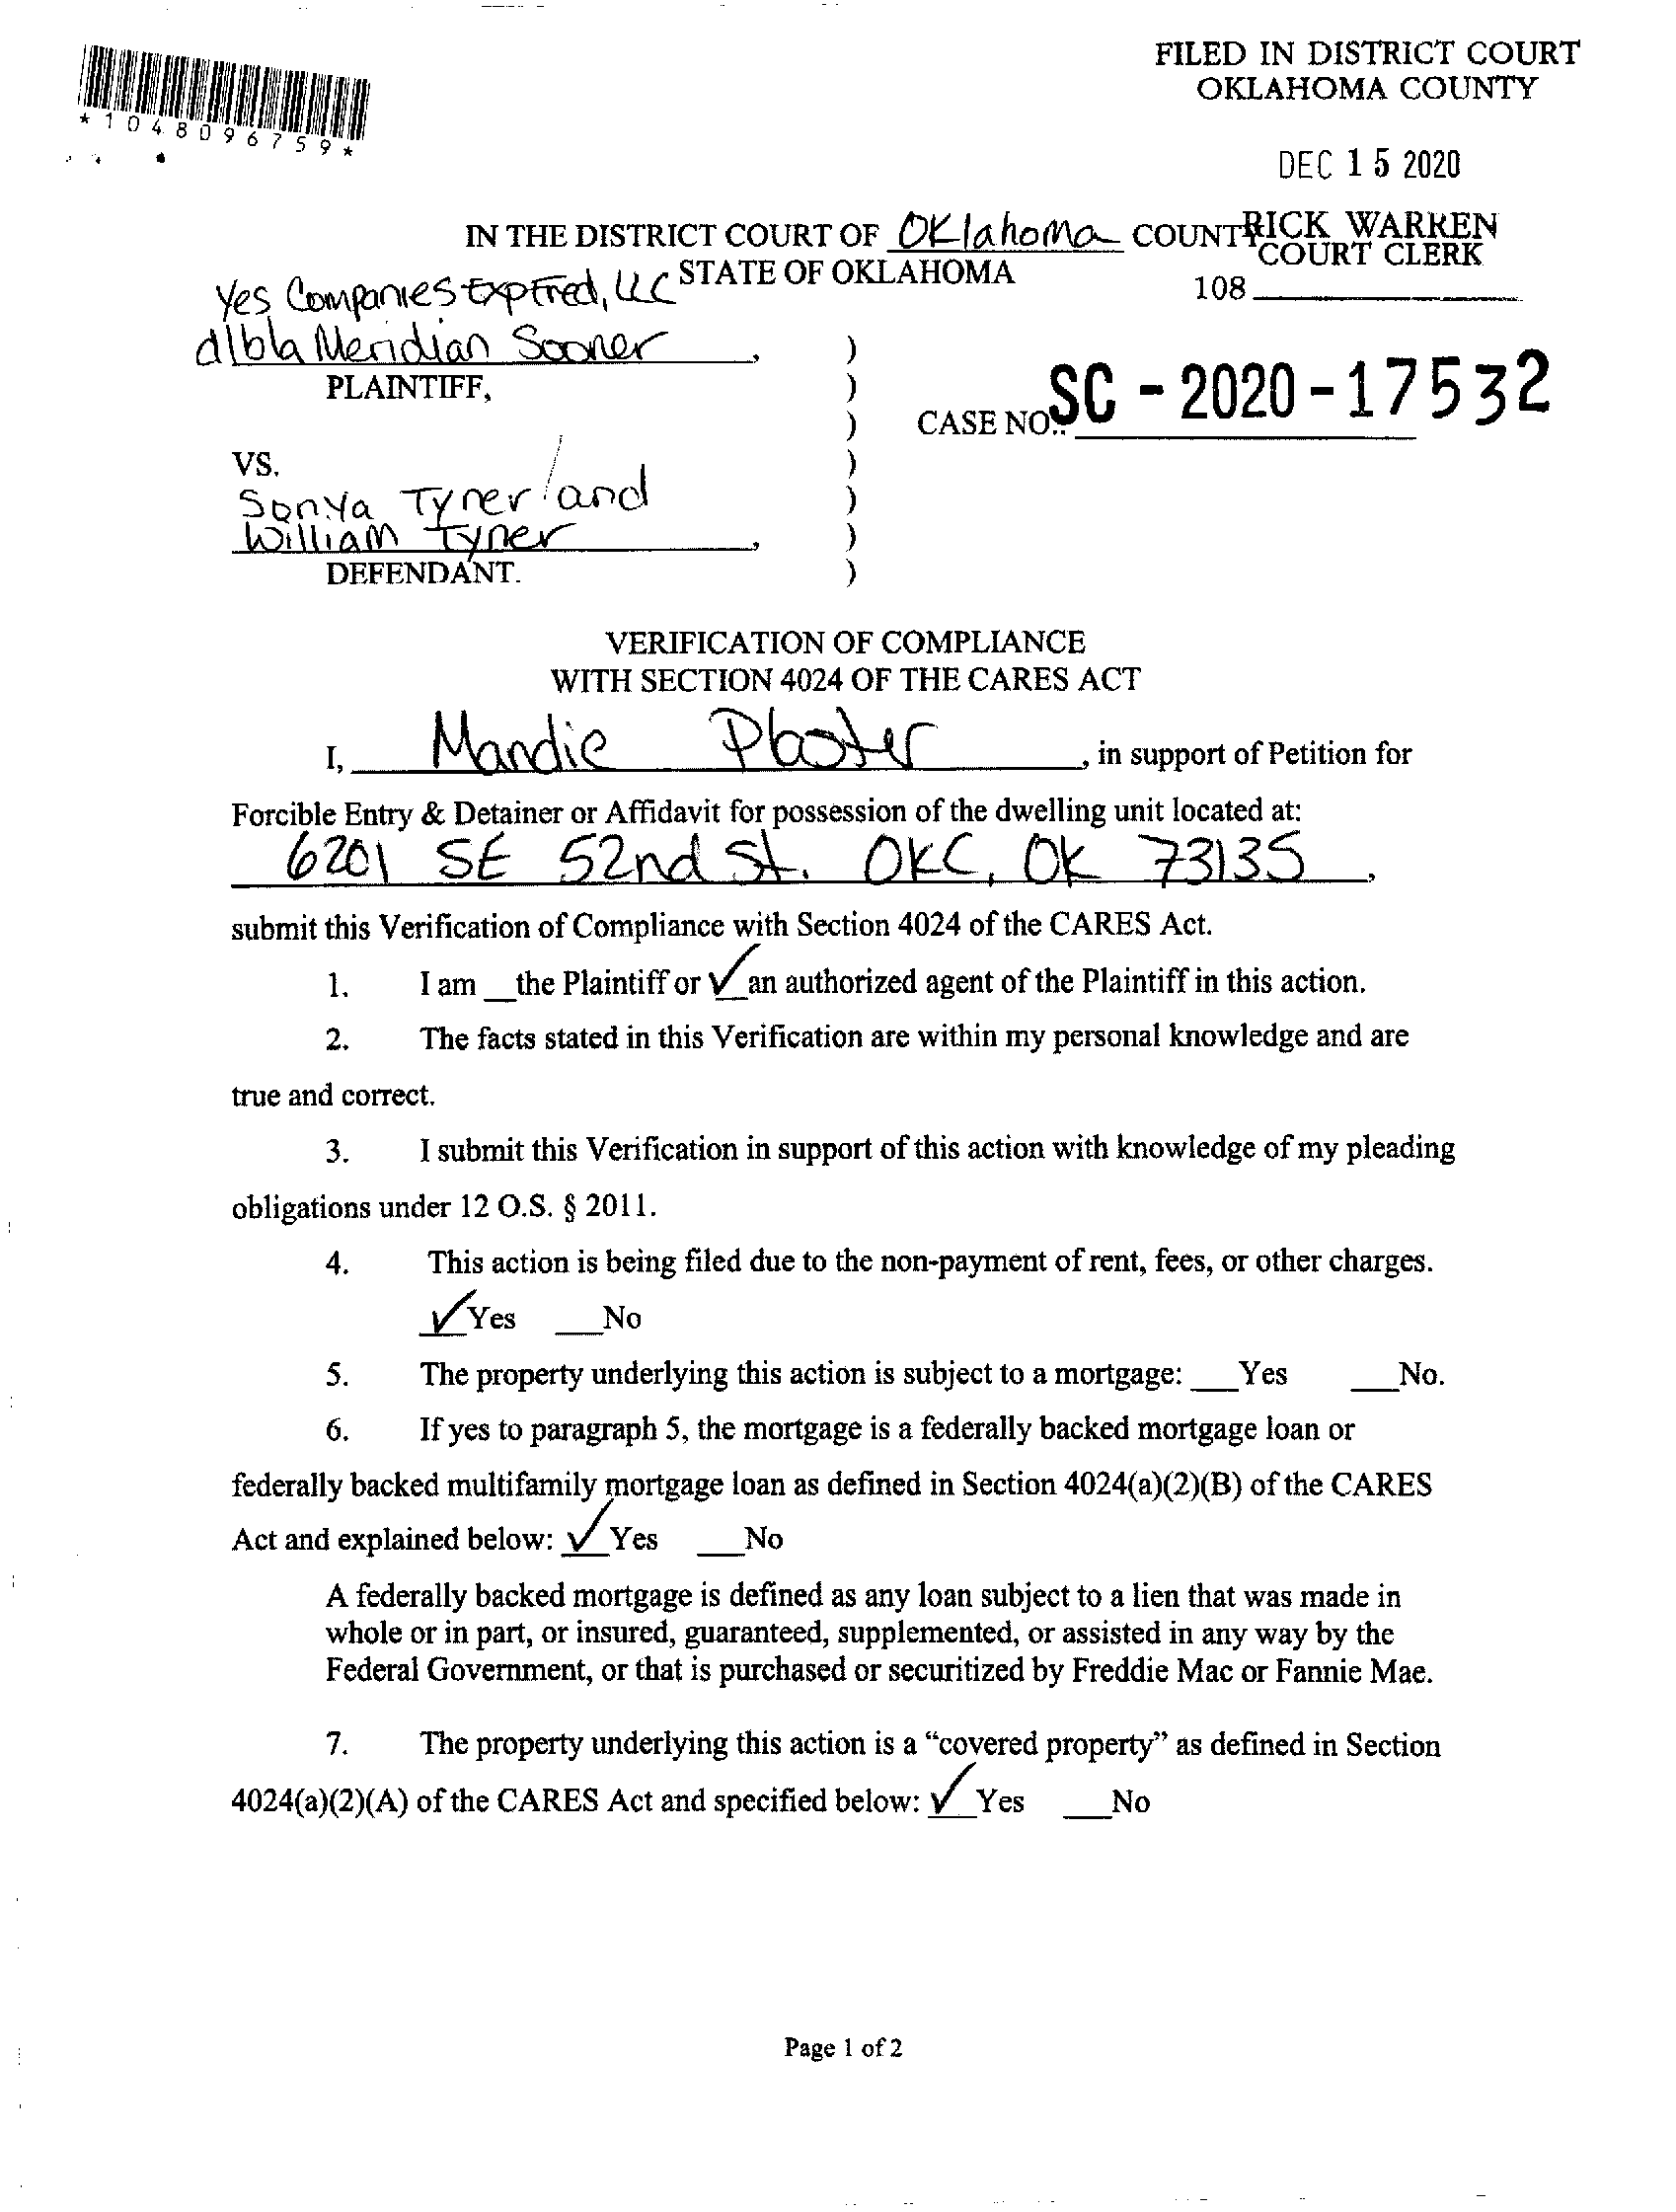 FILED IN DISTRICT COURT
OKLAHOMA COUNTY
*1048096759*
DEC 15 2020
IN THE DISTRICT COURT OF Oklahoma COUNTY
RICK WARREN
COURT CLERK
STATE OF OKLAHOMA
108
Yes Companies ExpFred, LLC
d/b/a Meridian Sooner,
PLAINTIFF,
CASE NO.: SC-2020-17532
VS.
Sonya Tyner and
William Tyner,
DEFENDANT.
)
)
)
)
)
)
)
VERIFICATION OF COMPLIANCE
WITH SECTION 4024 OF THE CARES ACT
I, Mandie Plaster, in support of Petition for
Forcible Entry & Detainer or Affidavit for possession of the dwelling unit located at:
6201 SE 52nd St. OKC, OK 73135,
submit this Verification of Compliance with Section 4024 of the CARES Act.
1. I am __the Plaintiff or ✓ an authorized agent of the Plaintiff in this action.
2. The facts stated in this Verification are within my personal knowledge and are
true and correct.
3. I submit this Verification in support of this action with knowledge of my pleading
obligations under 12 O.S. § 2011.
4. This action is being filed due to the non-payment of rent, fees, or other charges.
✓ Yes ___No
5. The property underlying this action is subject to a mortgage: ___Yes ___No.
6. If yes to paragraph 5, the mortgage is a federally backed mortgage loan or
federally backed multifamily mortgage loan as defined in Section 4024(a)(2)(B) of the CARES
Act and explained below: ✓ Yes ___No
A federally backed mortgage is defined as any loan subject to a lien that was made in
whole or in part, or insured, guaranteed, supplemented, or assisted in any way by the
Federal Government, or that is purchased or securitized by Freddie Mac or Fannie Mae.
7. The property underlying this action is a “covered property” as defined in Section
4024(a)(2)(A) of the CARES Act and specified below: ✓ Yes ___No
Page 1 of 2